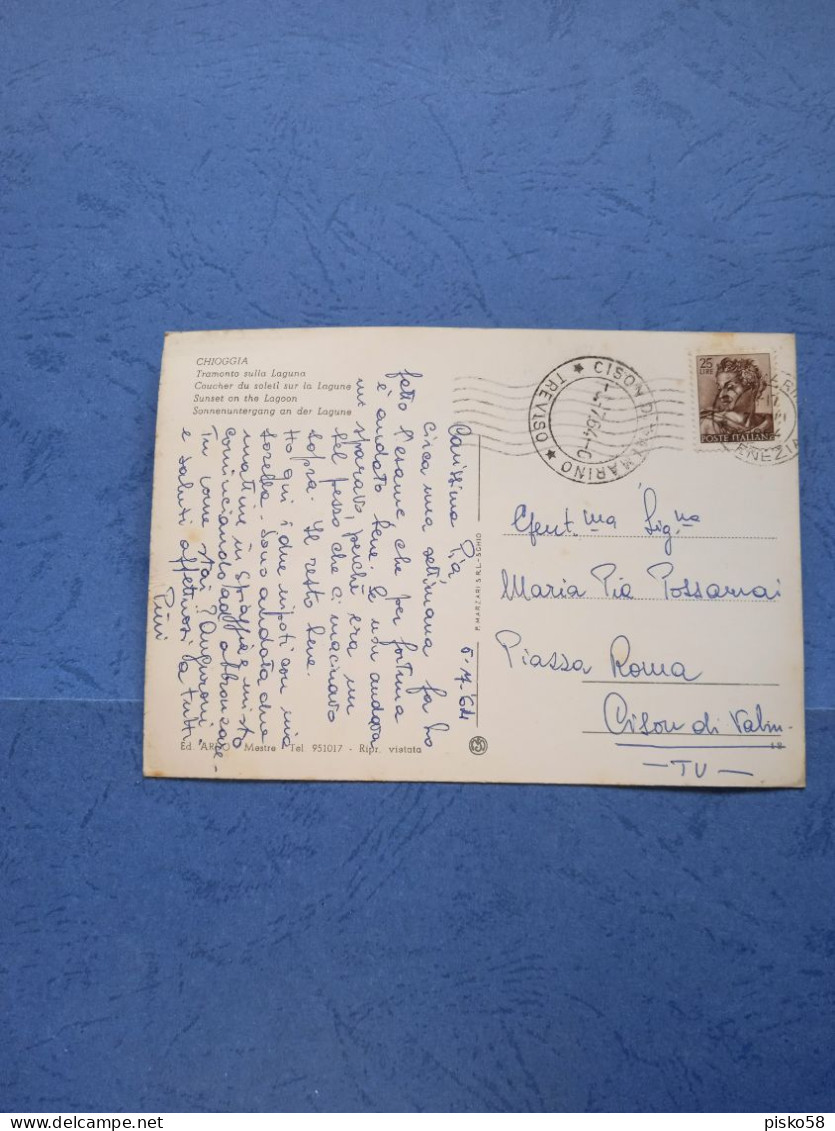 CHIOGGIA
Tramonto sulla Laguna
Coucher du soleil sur la Lagune
Sunset on the Lagoon
Sonnenuntergang an der Lagune
Carissima Pia 6.7.64
Circa una settimana fa ho
fatto l'esame, che per fortuna
è andato bene. Se non andava
mi sparavo, perchè era un
bel pezzo che ci macinavo
sopra. Il resto bene.
Ho qui i due nipoti con mia
sorella. Sono andata due
mattine in spiaggia e mi sto
cominciando ad abbronzare.
Tu come stai? Auguroni
e saluti affettuosi a tutti
Pini
Ed. ARGO Mestre Tel 951017 - Ripr. vietata
P. MARZARI S.R.L.-SCHIO
CISON DI VALMARINO
* TREVISO *
7.64
25
LIRE
POSTE ITALIANE
VENEZIA
Gent.ma Sig.na
Maria Pia Possamai
Piazza Roma
Cison di Valm.
- TV -
pisko58